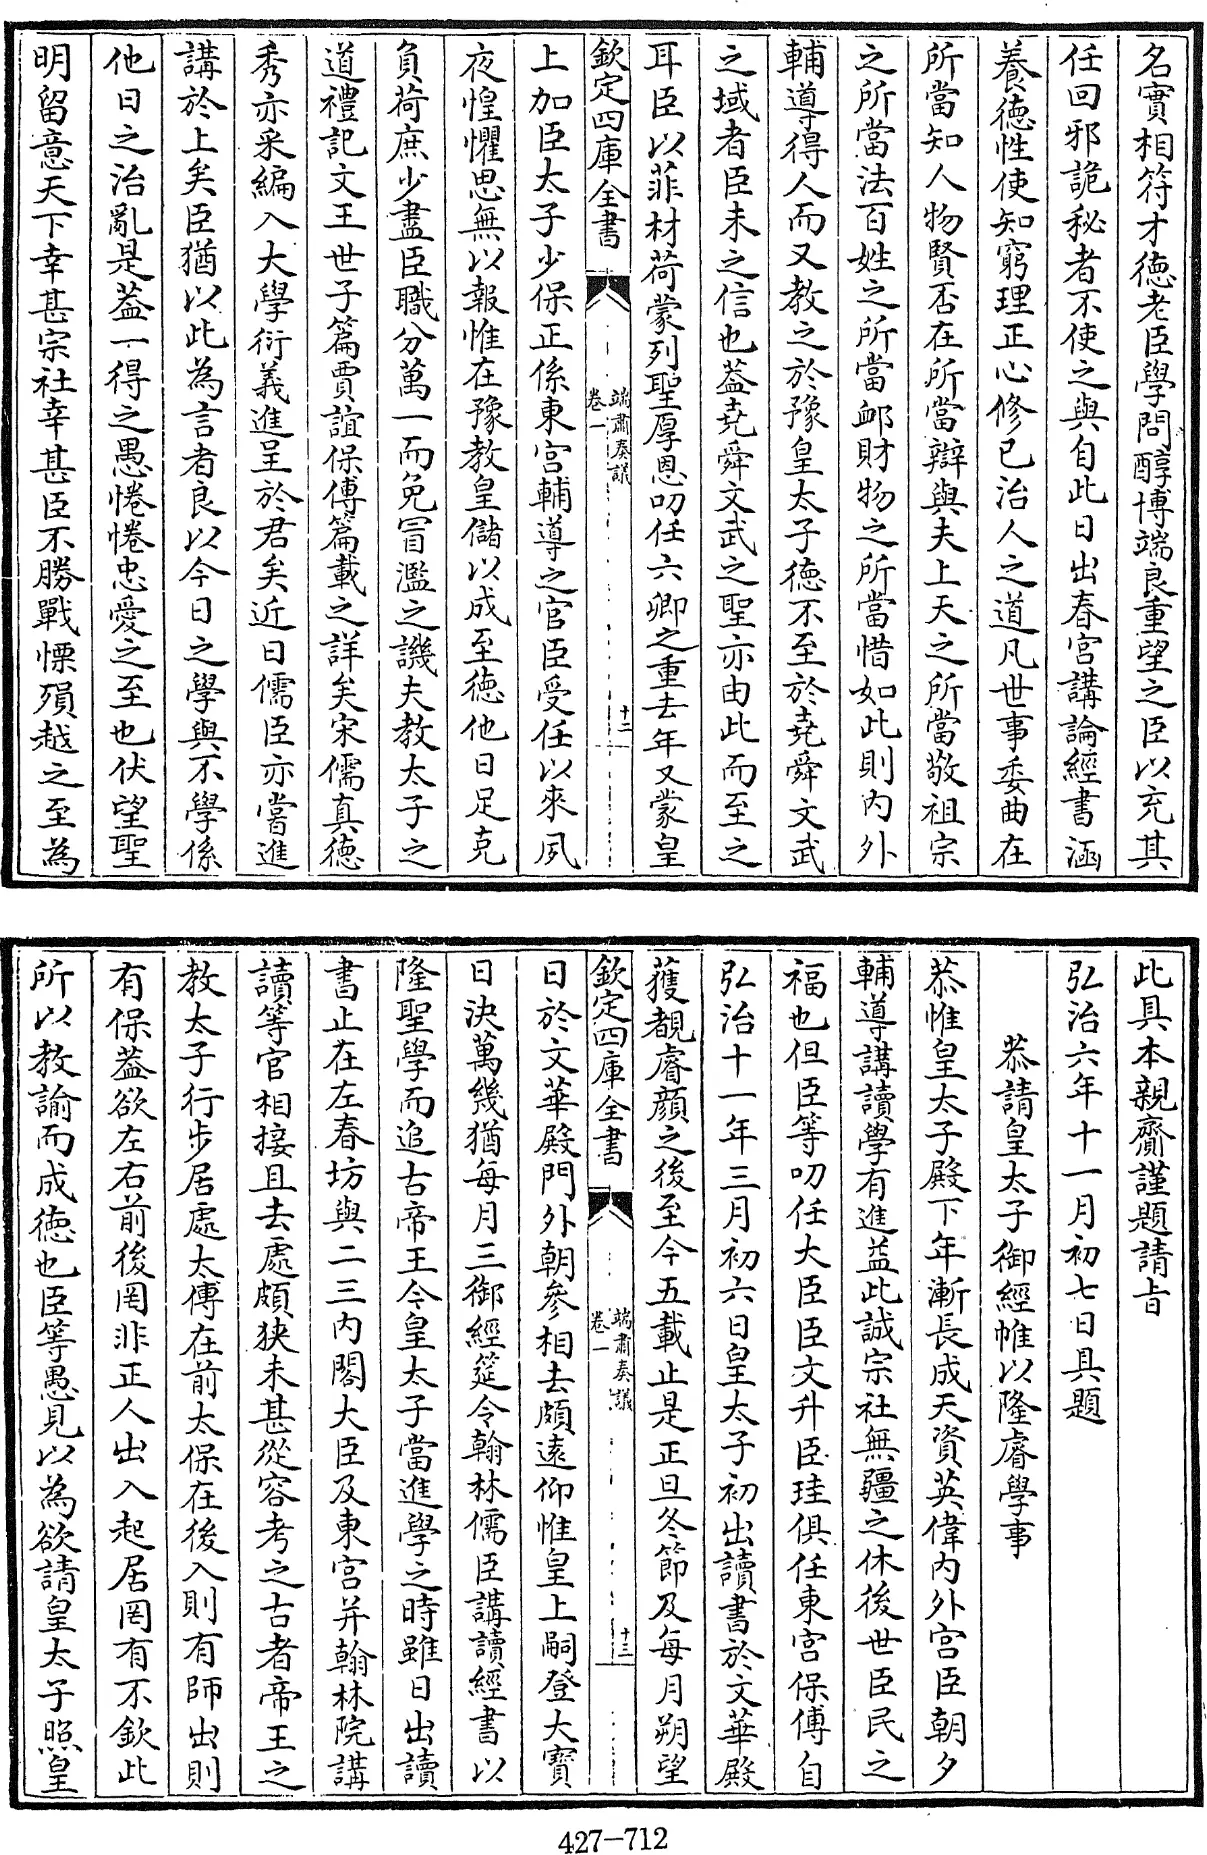 名實相符才徳老臣學問醇博端良重望之臣以充其
任回邪詭秘者不使之與自此日出春宮講論經書涵
養徳性使知窮理正心修已治人之道凡世事委曲在
所當知人物賢否在所當辯與夫上天之所當敬祖宗
之所當法百姓之所當䘏財物之所當惜如此則内外
輔導得人而又教之於豫皇太子徳不至於堯舜文武
之域者臣未之信也葢堯舜文武之聖亦由此而至之
耳臣以菲材荷蒙列聖厚恩叨任六卿之重去年又蒙皇
欽定四庫全書
端肅奏議
卷一
十二
上加臣太子少保正係東宮輔導之官臣受任以來夙
夜惶懼思無以報惟在豫教皇儲以成至徳他日足克
負荷庶少盡臣職分萬一而免冐濫之譏夫教太子之
道禮記文王世子篇賈誼保傅篇載之詳矣宋儒真徳
秀亦采編入大學衍義進呈於君矣近日儒臣亦嘗進
講於上矣臣猶以此為言者良以今日之學與不學係
他日之治亂是葢一得之愚惓惓忠愛之至也伏望聖
明留意天下幸甚宗社幸甚臣不勝戰慄殞越之至為
此具本親齎謹題請㫖
弘治六年十一月初七日具題
恭請皇太子御經帷以隆睿學事
恭惟皇太子殿下年漸長成天資英偉内外宮臣朝夕
輔導講讀學有進益此誠宗社無疆之休後世臣民之
福也但臣等叨任大臣臣文升臣珪俱任東宮保傅自
弘治十一年三月初六日皇太子初出讀書於文華殿
獲覩睿顔之後至今五載止是正旦冬節及每月朔望
欽定四庫全書
端肅奏議
卷一
十三
日於文華殿門外朝參相去頗遠仰惟皇上嗣登大寳
日決萬幾猶每月三御經筵令翰林儒臣講讀經書以
隆聖學而追古帝王今皇太子當進學之時雖日出讀
書止在左春坊與二三内閣大臣及東宮并翰林院講
讀等官相接且去處頗狹未甚從容考之古者帝王之
教太子行步居處太傅在前太保在後入則有師出則
有保葢欲左右前後罔非正人出入起居罔有不欽此
所以教諭而成徳也臣等愚見以為欲請皇太子照皇
427-712